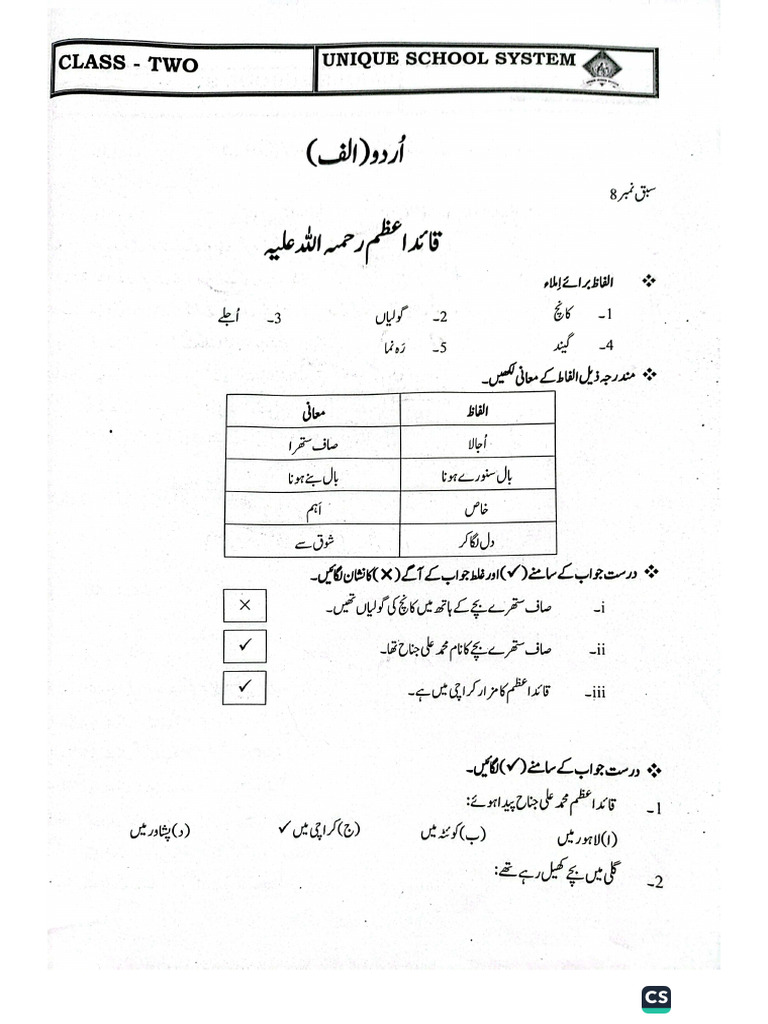 CLASS - TWO
UNIQUE SCHOOL SYSTEM
اُردو (الف)
سبق نمبر 8
قائداعظم رحمۃ اللہ علیہ
❖ الفاظ برائے اِملاء
1۔ کانچ 2۔ گولیاں 3۔ اُجلے
4۔ گیند 5۔ رَہ نما
❖ مندرجہ ذیل الفاط کے معانی لکھیں۔
الفاظ معانی
اُجالا صاف ستھرا
بال سنورے ہونا بال بنے ہونا
خاص اَہم
دل لگا کر شوق سے
❖ درست جواب کے سامنے (✓) اور غلط جواب کے آگے (✕) کا نشان لگائیں۔
i۔ صاف ستھرے بچے کے ہاتھ میں کانچ کی گولیاں تھیں۔ ✕
ii۔ صاف ستھرے بچے کا نام محمد علی جناح تھا۔ ✓
iii۔ قائداعظم کا مزار کراچی میں ہے۔ ✓
❖ درست جواب کے سامنے (✓) لگائیں۔
1۔ قائداعظم محمد علی جناح پیدا ہوئے:
(ا) لاہور میں (ب) کوئٹہ میں (ج) کراچی میں ✓ (د) پشاور میں
2۔ گلی میں بچے کھیل رہے تھے:
CS